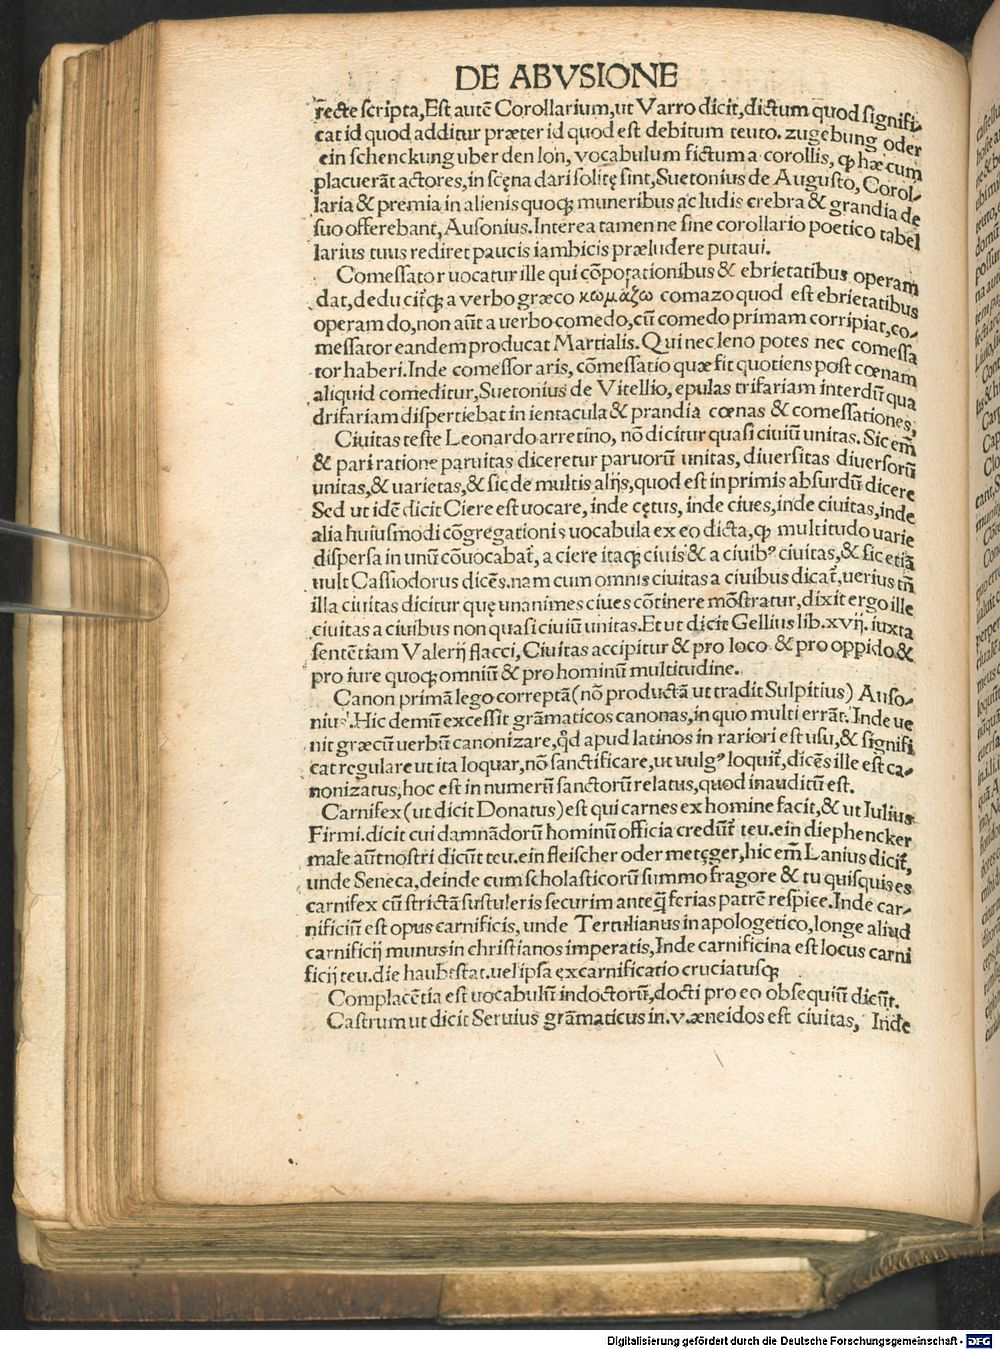 DE ABVSIONE
recte scripta, Est autē Corollarium, ut Varro dicit, dictum quod signifi-
cat id quod additur præter id quod est debitum teuto. zugebung oder
ein schenckung uber den lon, vocabulum fictum a corollis, ꝙ hæ cum
placuerāt actores, in scęna dari solitę sint, Suetonius de Augusto, Corol-
laria & premia in alienis quoqꝫ muneribus ac ludis crebra & grandia de
suo offerebant, Ausonius. Interea tamen ne sine corollario poetico tabel
larius tuus rediret paucis iambicis præludere putaui.
Comessator uocatur ille qui cōpotationibus & ebrietatibus operam
dat, deducit́qꝫ a verbo græco κωμάζω comazo quod est ebrietatibus
operam do, non aūt a uerbo comedo, cū comedo primam corripiat, co-
messator eandem producat Martialis. Qui nec leno potes nec comessa
tor haberi. Inde comessor aris, cōmessatio quæ fit quotiens post cœnam
aliquid comeditur, Suetonius de Vitellio, epulas trifariam interdū qua
drifariam dispertiebat in ientacula & prandia cœnas & comessationes,
Ciuitas teste Leonardo arretino, nō dicitur quasi ciuiū unitas. Sic em̄
& pari ratione paruitas diceretur paruorū unitas, diuersitas diuersorū
unitas, & uarietas, & sic de multis alijs, quod est in primis absurdū dicere
Sed ut idē dicit Ciere est uocare, inde cętus, inde ciues, inde ciuitas, inde
alia huiusmodi cōgregationis uocabula ex eo dicta, ꝙ multitudo uarie
dispersa in unū cōuocabat́, a ciere itaqꝫ ciuis & a ciuibꝰ ciuitas, & sic etiā
uult Cassiodorus dicēs. nam cum omnis ciuitas a ciuibus dicat́, uerius tn̄
illa ciuitas dicitur quę unanimes ciues cōtinere mōstratur, dixit ergo ille
ciuitas a ciuibus non quasi ciuiū unitas. Et ut dicit Gellius lib. xvij. iuxta
sentētiam Valerij flacci, Ciuitas accipitur & pro loco & pro oppido &
pro iure quoqꝫ omniū & pro hominū multitudine.
Canon primā lego correptā (nō productā ut tradit Sulpitius) Auso-
nius. Hic demū excessit grāmaticos canonas, in quo multi errāt. Inde ue
nit græcū uerbū canonizare, qd̓ apud latinos in rariori est usu, & signifi
cat regulare ut ita loquar, nō sanctificare, ut uulgꝰ loquit́, dicēs ille est ca-
nonizatus, hoc est in numerū sanctorū relatus, quod inauditū est.
Carnifex (ut dicit Donatus) est qui carnes ex homine facit, & ut Iulius
Firmi. dicit cui damnādorū hominū officia credūt́ teu. ein diephencker
male aūt nostri dicūt teu. ein fleischer oder metzger, hic em̄ Lanius dicit́,
unde Seneca, deinde cum scholasticorū summo fragore & tu quisquis es
carnifex cū strictā sustuleris securim anteq̄ ferias patrē respice. Inde car-
nificiū est opus carnificis, unde Tertulianus in apologetico, longe aliud
carnificij munus in christianos imperatis, Inde carnificina est locus carni
ficij teu. die haubtstat. uel ipsa excarnificatio cruciatusqꝫ
Complacētia est uocabulū indoctorū, docti pro eo obsequiū dicūt.
Castrum ut dicit Seruius grāmaticus in. v. æneidos est ciuitas, Inde
Digitalisierung gefördert durch die Deutsche Forschungsgemeinschaft - DFG